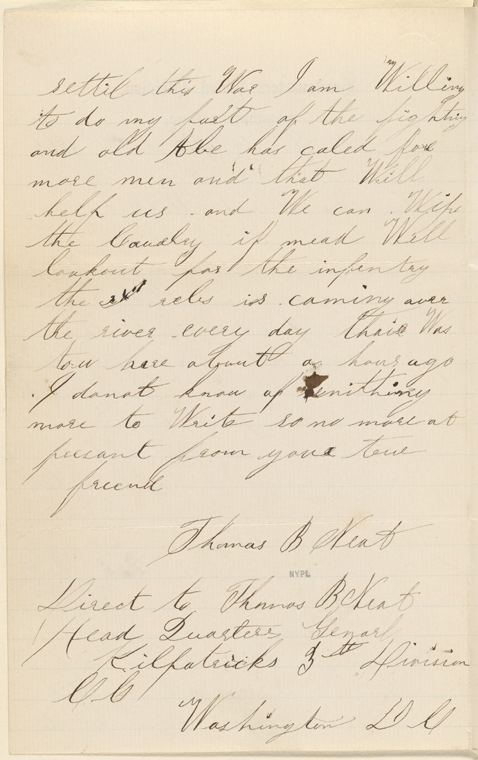 settil this War I am Willing
to do my part of the fighting
and old Abe has caled for
more men and that Will
help us . and We can . Wipe
the Cavalry if mead Will
lookout for the infentry
the rebs is . coming over
the river every day thair Was
tow here about a hour ago
. I donot know of enithing
more to Write so no more at
pesant from your true
friend
Thomas B Neat
NYPL
Direct to Thomas B Neat
Head Quarters Genarl
Kilpatricks 3th Division
CC
Washington D C